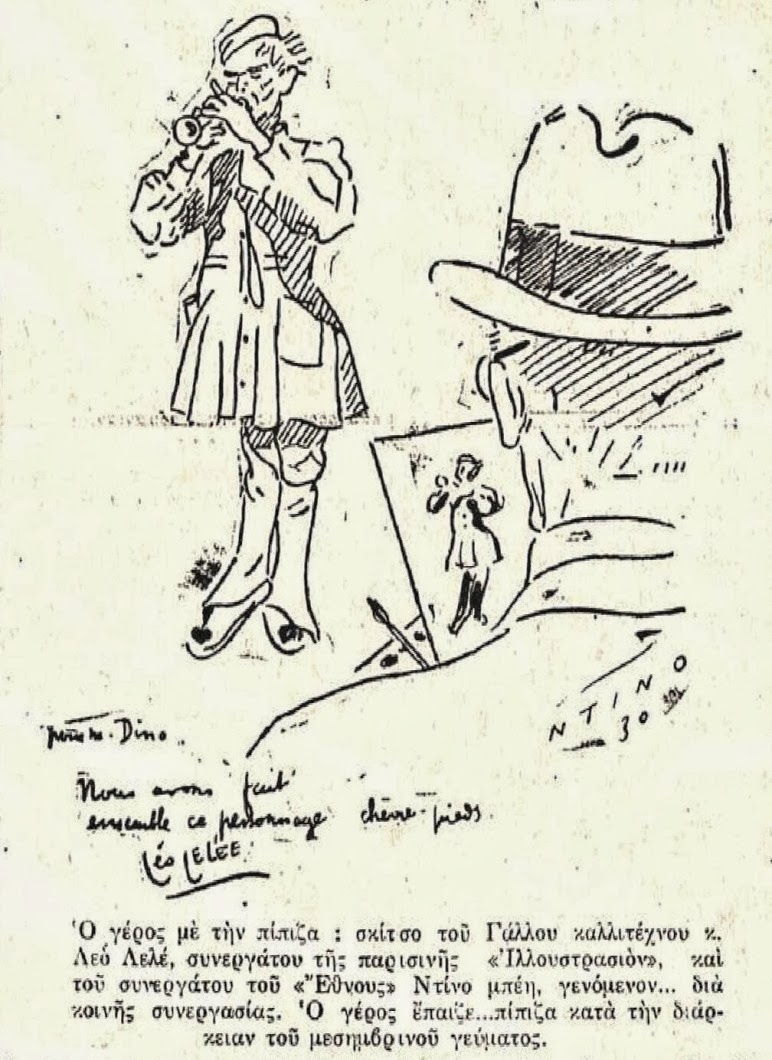 ΝΤΙΝΟ
30
Dino.
Nous avons fait
ensemble ce personnage chèvre-pieds.
Léo LELÉE
Ὁ γέρος μὲ τὴν πίπιζα : σκίτσο τοῦ Γάλλου καλλιτέχνου κ.
Λεὸ Λελέ, συνεργάτου τῆς παρισινῆς «Ἰλλουστρασιὸν», καὶ
τοῦ συνεργάτου τοῦ «Ἔθνους» Ντίνο μπέη, γενόμενον... διὰ
κοινῆς συνεργασίας. Ὁ γέρος ἔπαιζε...πίπιζα κατὰ τὴν διάρ-
κειαν τοῦ μεσημβρινοῦ γεύματος.